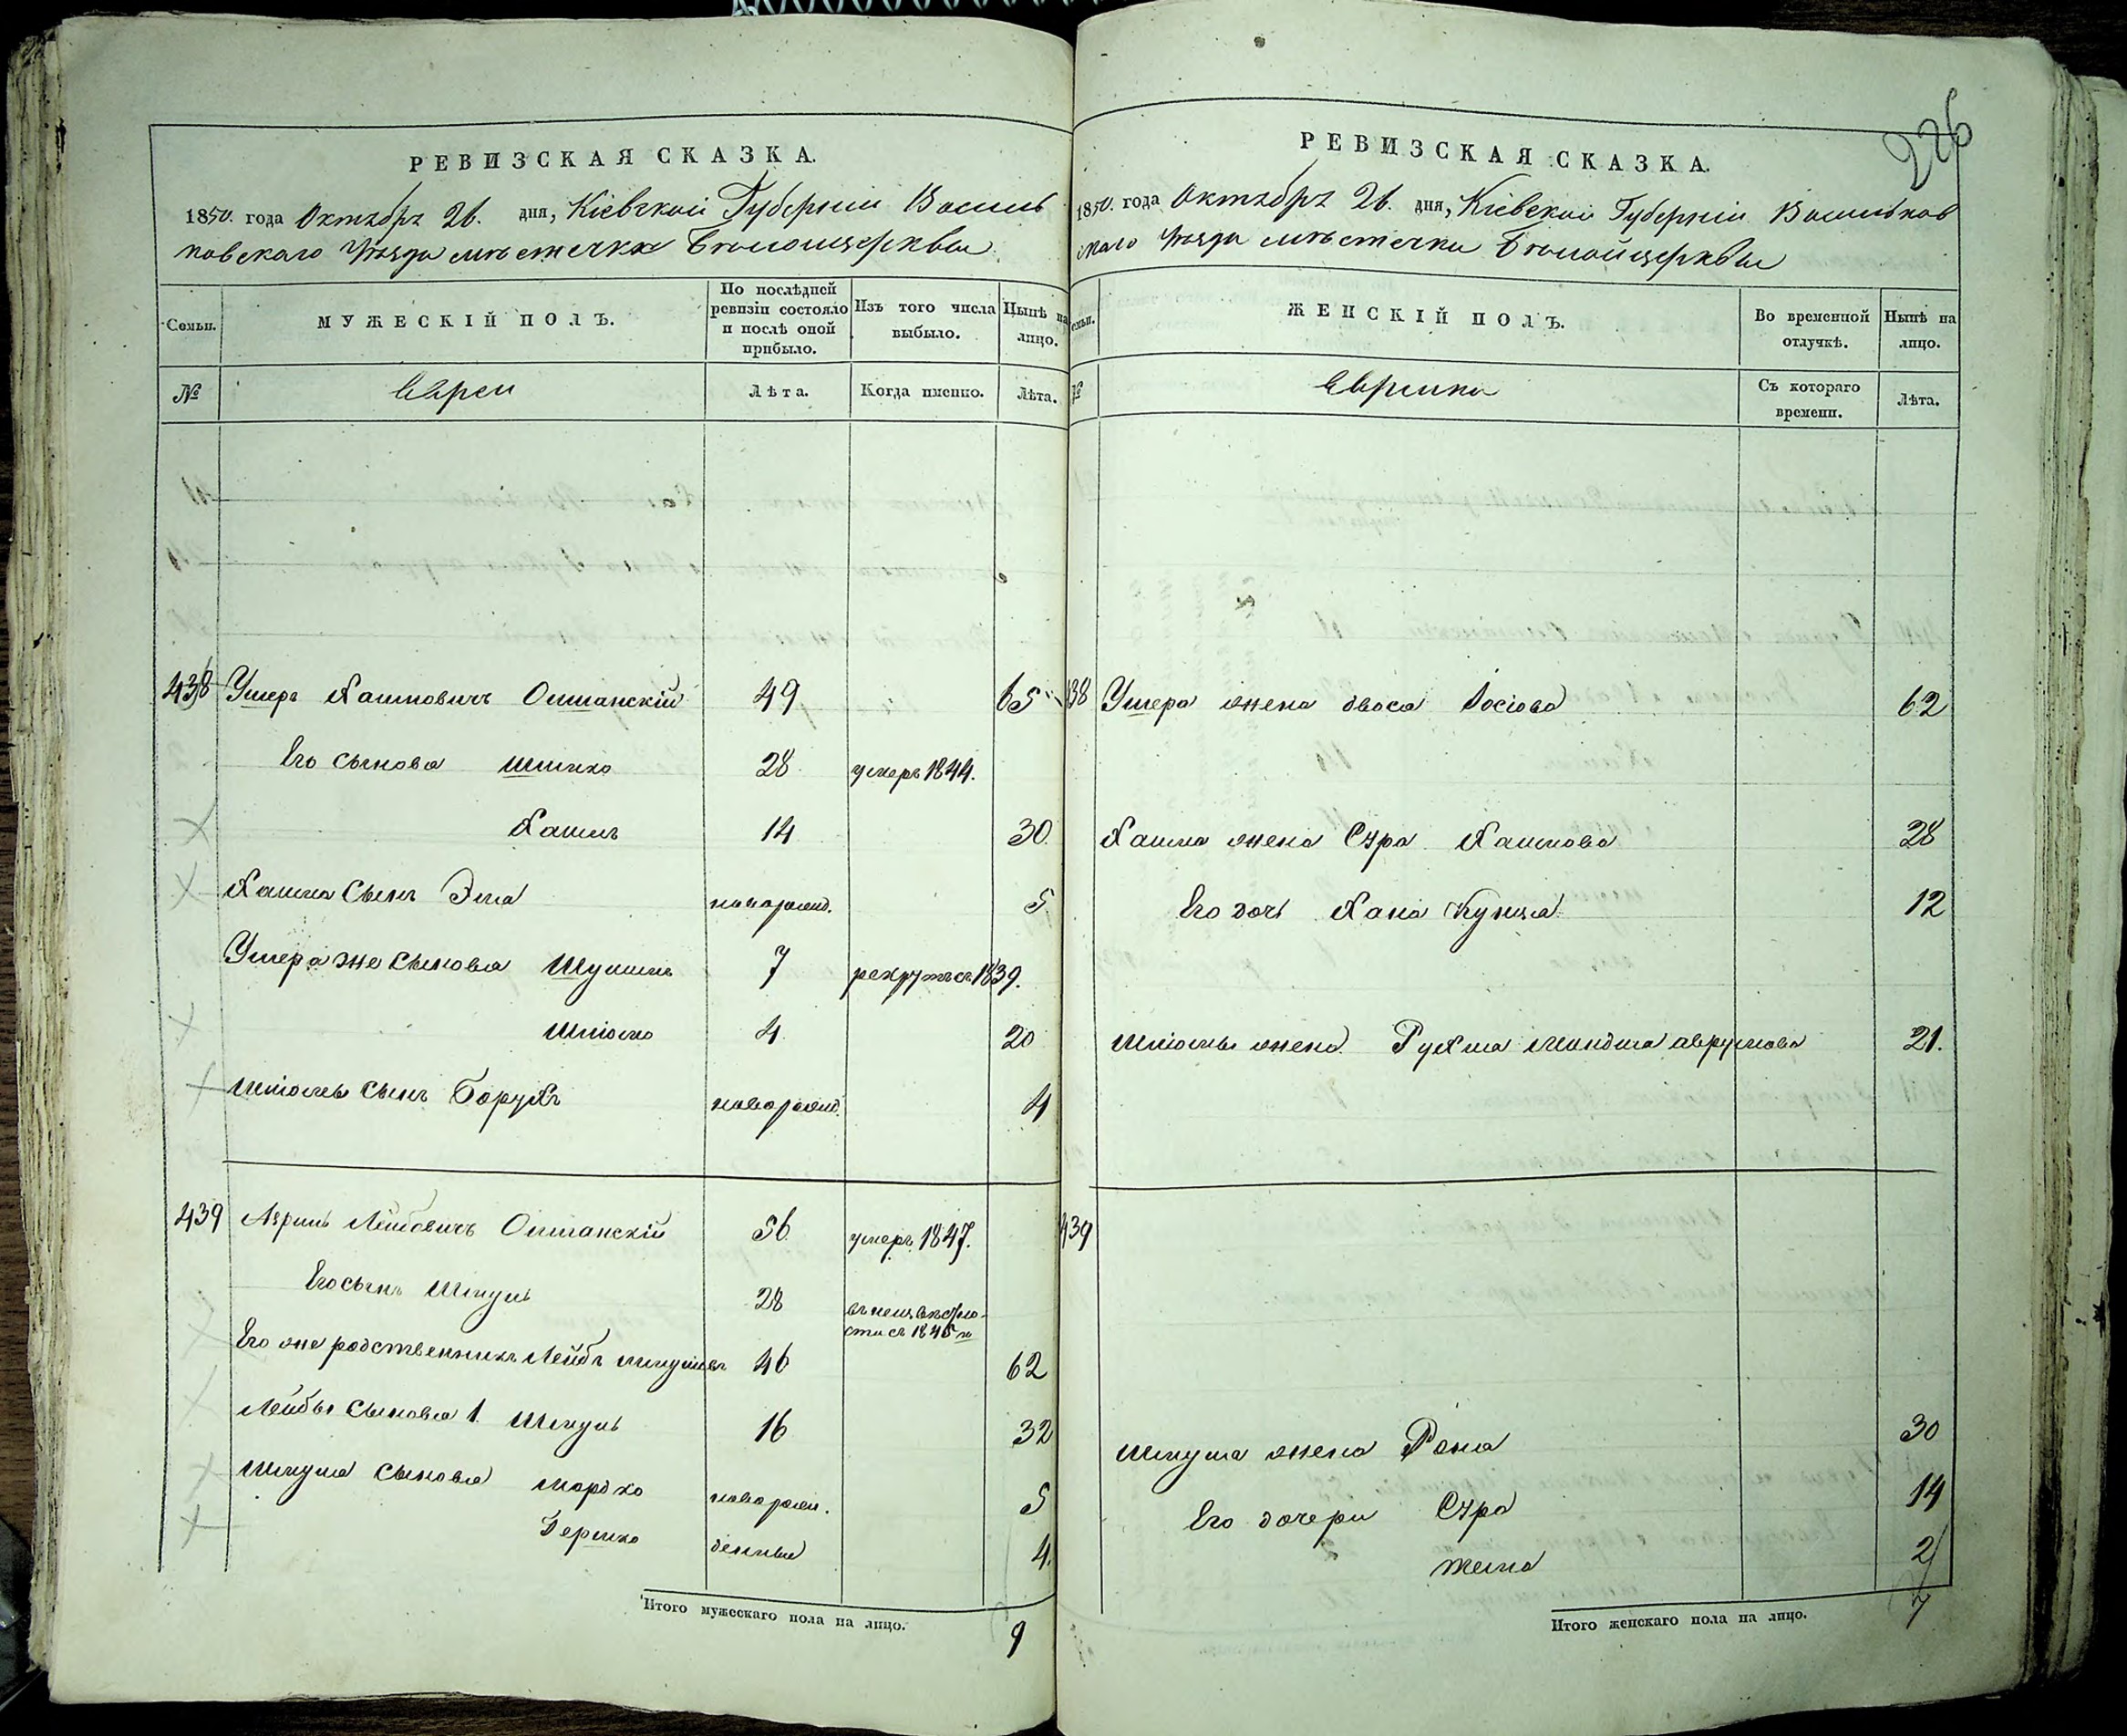 226
РЕВИЗСКАЯ СКАЗКА.
1850. года Октября 26. дня, Кіевской Губерніи Василь
ковскаго Уѣзда мѣстечка Бѣлойцеркви
Семьи.
МУЖЕСКІЙ ПОЛЪ.
По послѣдней ревизіи состояло и послѣ оной прибыло.
Изъ того числа выбыло.
Нынѣ на лицо.
№
Евреи
Лѣта.
Когда именно.
Лѣта.
438 Умеръ Хаимовичъ Ольшанскій 49 65
Его сыновья Шмилко 28 умеръ 1844.
Хаимъ 14 30
Хаима Сынъ Эля новорожд. 5
же сыновья 7 рекрутъ съ 1839.
Шлома 4 20
Шломы Сынъ Борухъ новорожд. 4
439 Лейбовичъ Ольшанскій 56 умеръ 1847.
Его сынъ Шмуль 28 въ неизвѣстно-
сти съ 1845 го
Его же родственникъ Лейба Шмулевъ 46 62
Лейбы Сыновья 1. Шмуль 16 32
Шмуля Сыновья Мордко новорож. 5
Гершко денные 4.
Итого мужескаго пола на лицо. 9
РЕВИЗСКАЯ СКАЗКА.
1850. года Октября 26. дня, Кіевской Губерніи Васильков
скаго Уѣзда мѣстечка Бѣлойцеркви
ЖЕНСКІЙ ПОЛЪ.
Во временной отлучкѣ.
Нынѣ на лицо.
№
Еврейки
Съ котораго времени.
Лѣта.
438 жена Двося Іосіова 62
Хаима жена Сура Хаимова 28
Его дочь Хана 12
Шломы жена Рухля Миндля Аврумова 21.
439
Шмуля жена 30
Его дочери Сура 14
2
Итого женскаго пола на лицо. 7